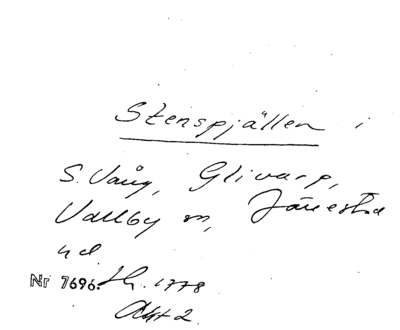 Stenspjällen i
S. Vång, Glivarp,
Vallby m, Jänestad
Nr 7696. Sk. 1778
Akt 2